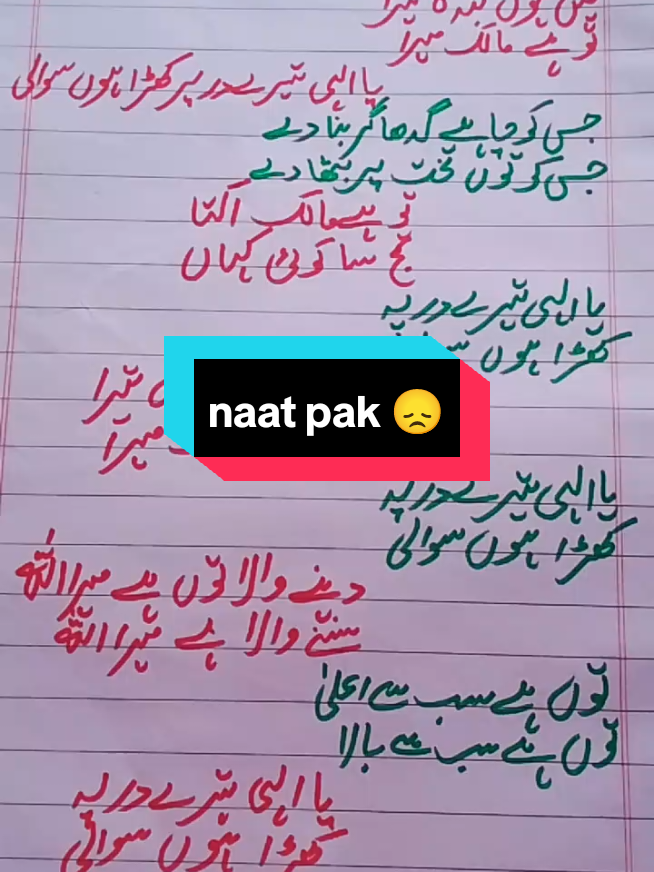 تو ہے مالک میرا
یا الہی تیرے در پر کھڑا ہوں سوالی
جس کو چاہے گدھا گر بنا دے
جس کو توں تخت پر بٹھا دے
تو ہے مالک اکتا
تج سا کوئی کہاں
یا الہی تیرے در پہ
کھڑا ہوں
تیرا
میرا
naat pak 😞
یا الہی تیرے در پہ
کھڑا ہوں سوالی
دینے والا توں ہے میرا اللہ
سننے والا ہے تیرا اللہ
توں ہے سب سے اعلیٰ
توں ہے سب سے بالا
یا الہی تیرے در پہ
کھڑا ہوں سوالی